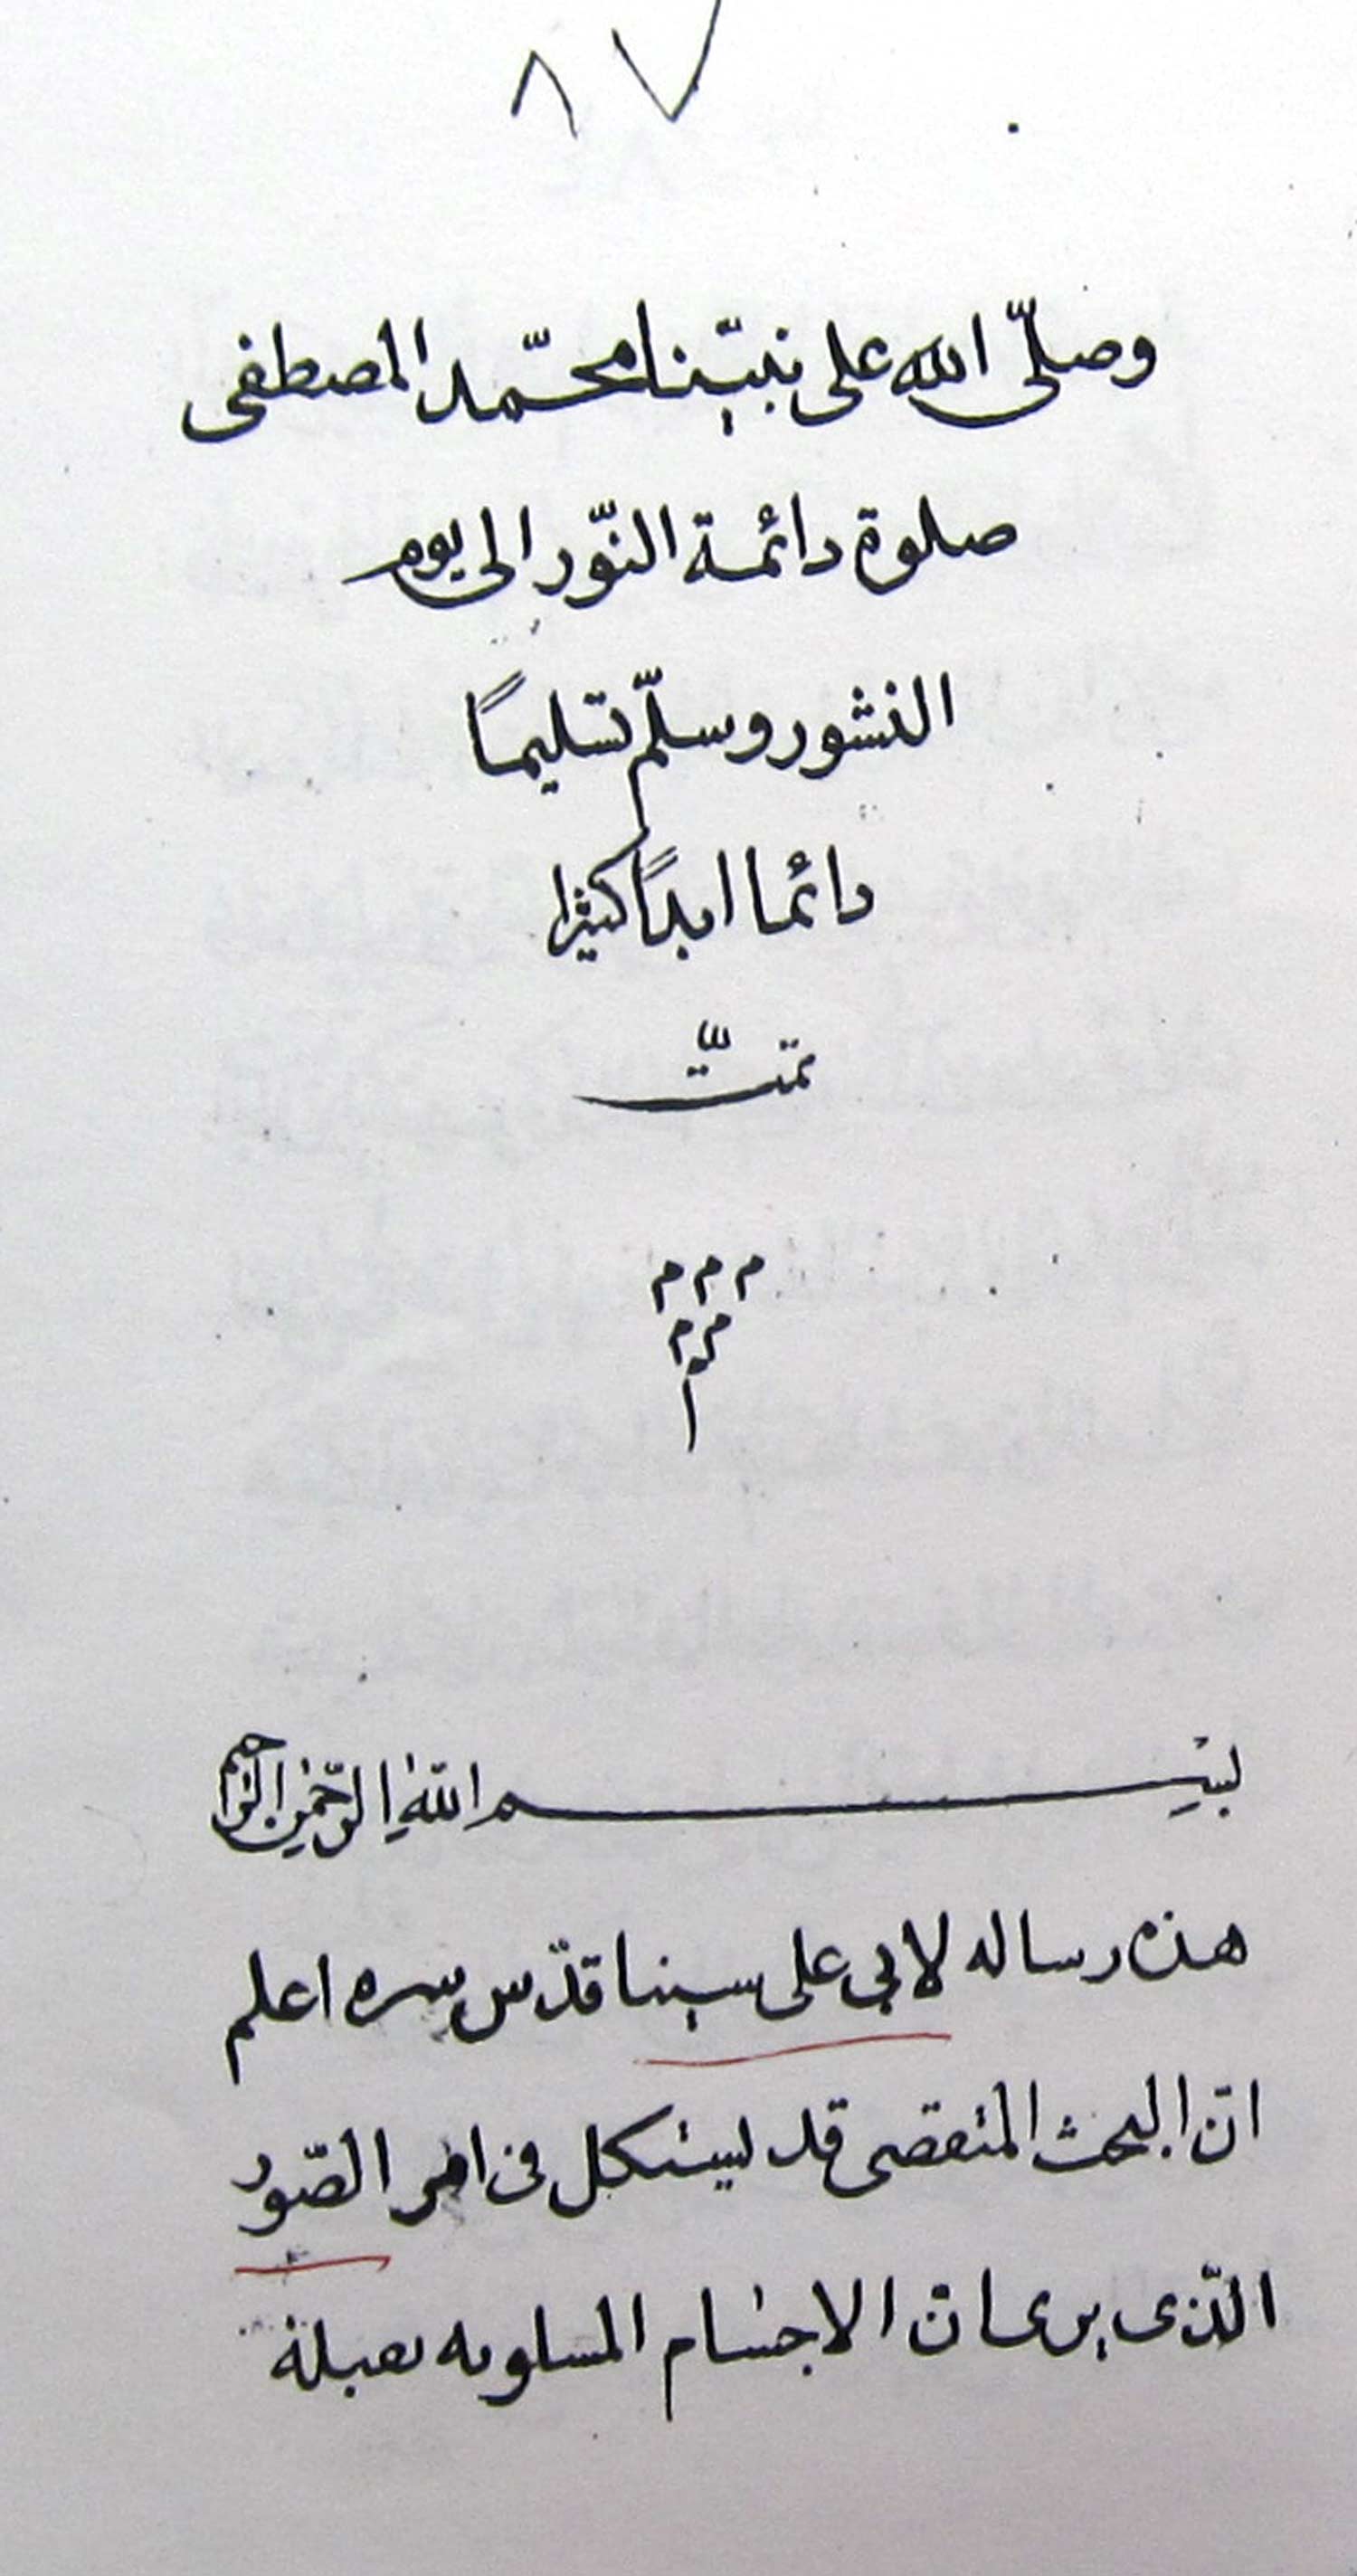 ٨٧
وصلّى الله على نبيّنا محمّد المصطفى
صلوة دائمة النّور الى يوم
النشور وسلّم تسليمًا
دائما ابدًا كثيرا
تمتّ
م م م
م م
بسم اللّٰه الرّحمن الرّحيم
هذه رساله لابى على سينا قدّس سره اعلم
انّ البحث المتقصى قد يشكل فى امر الصّور
الّذى يرى انّ الاجسام